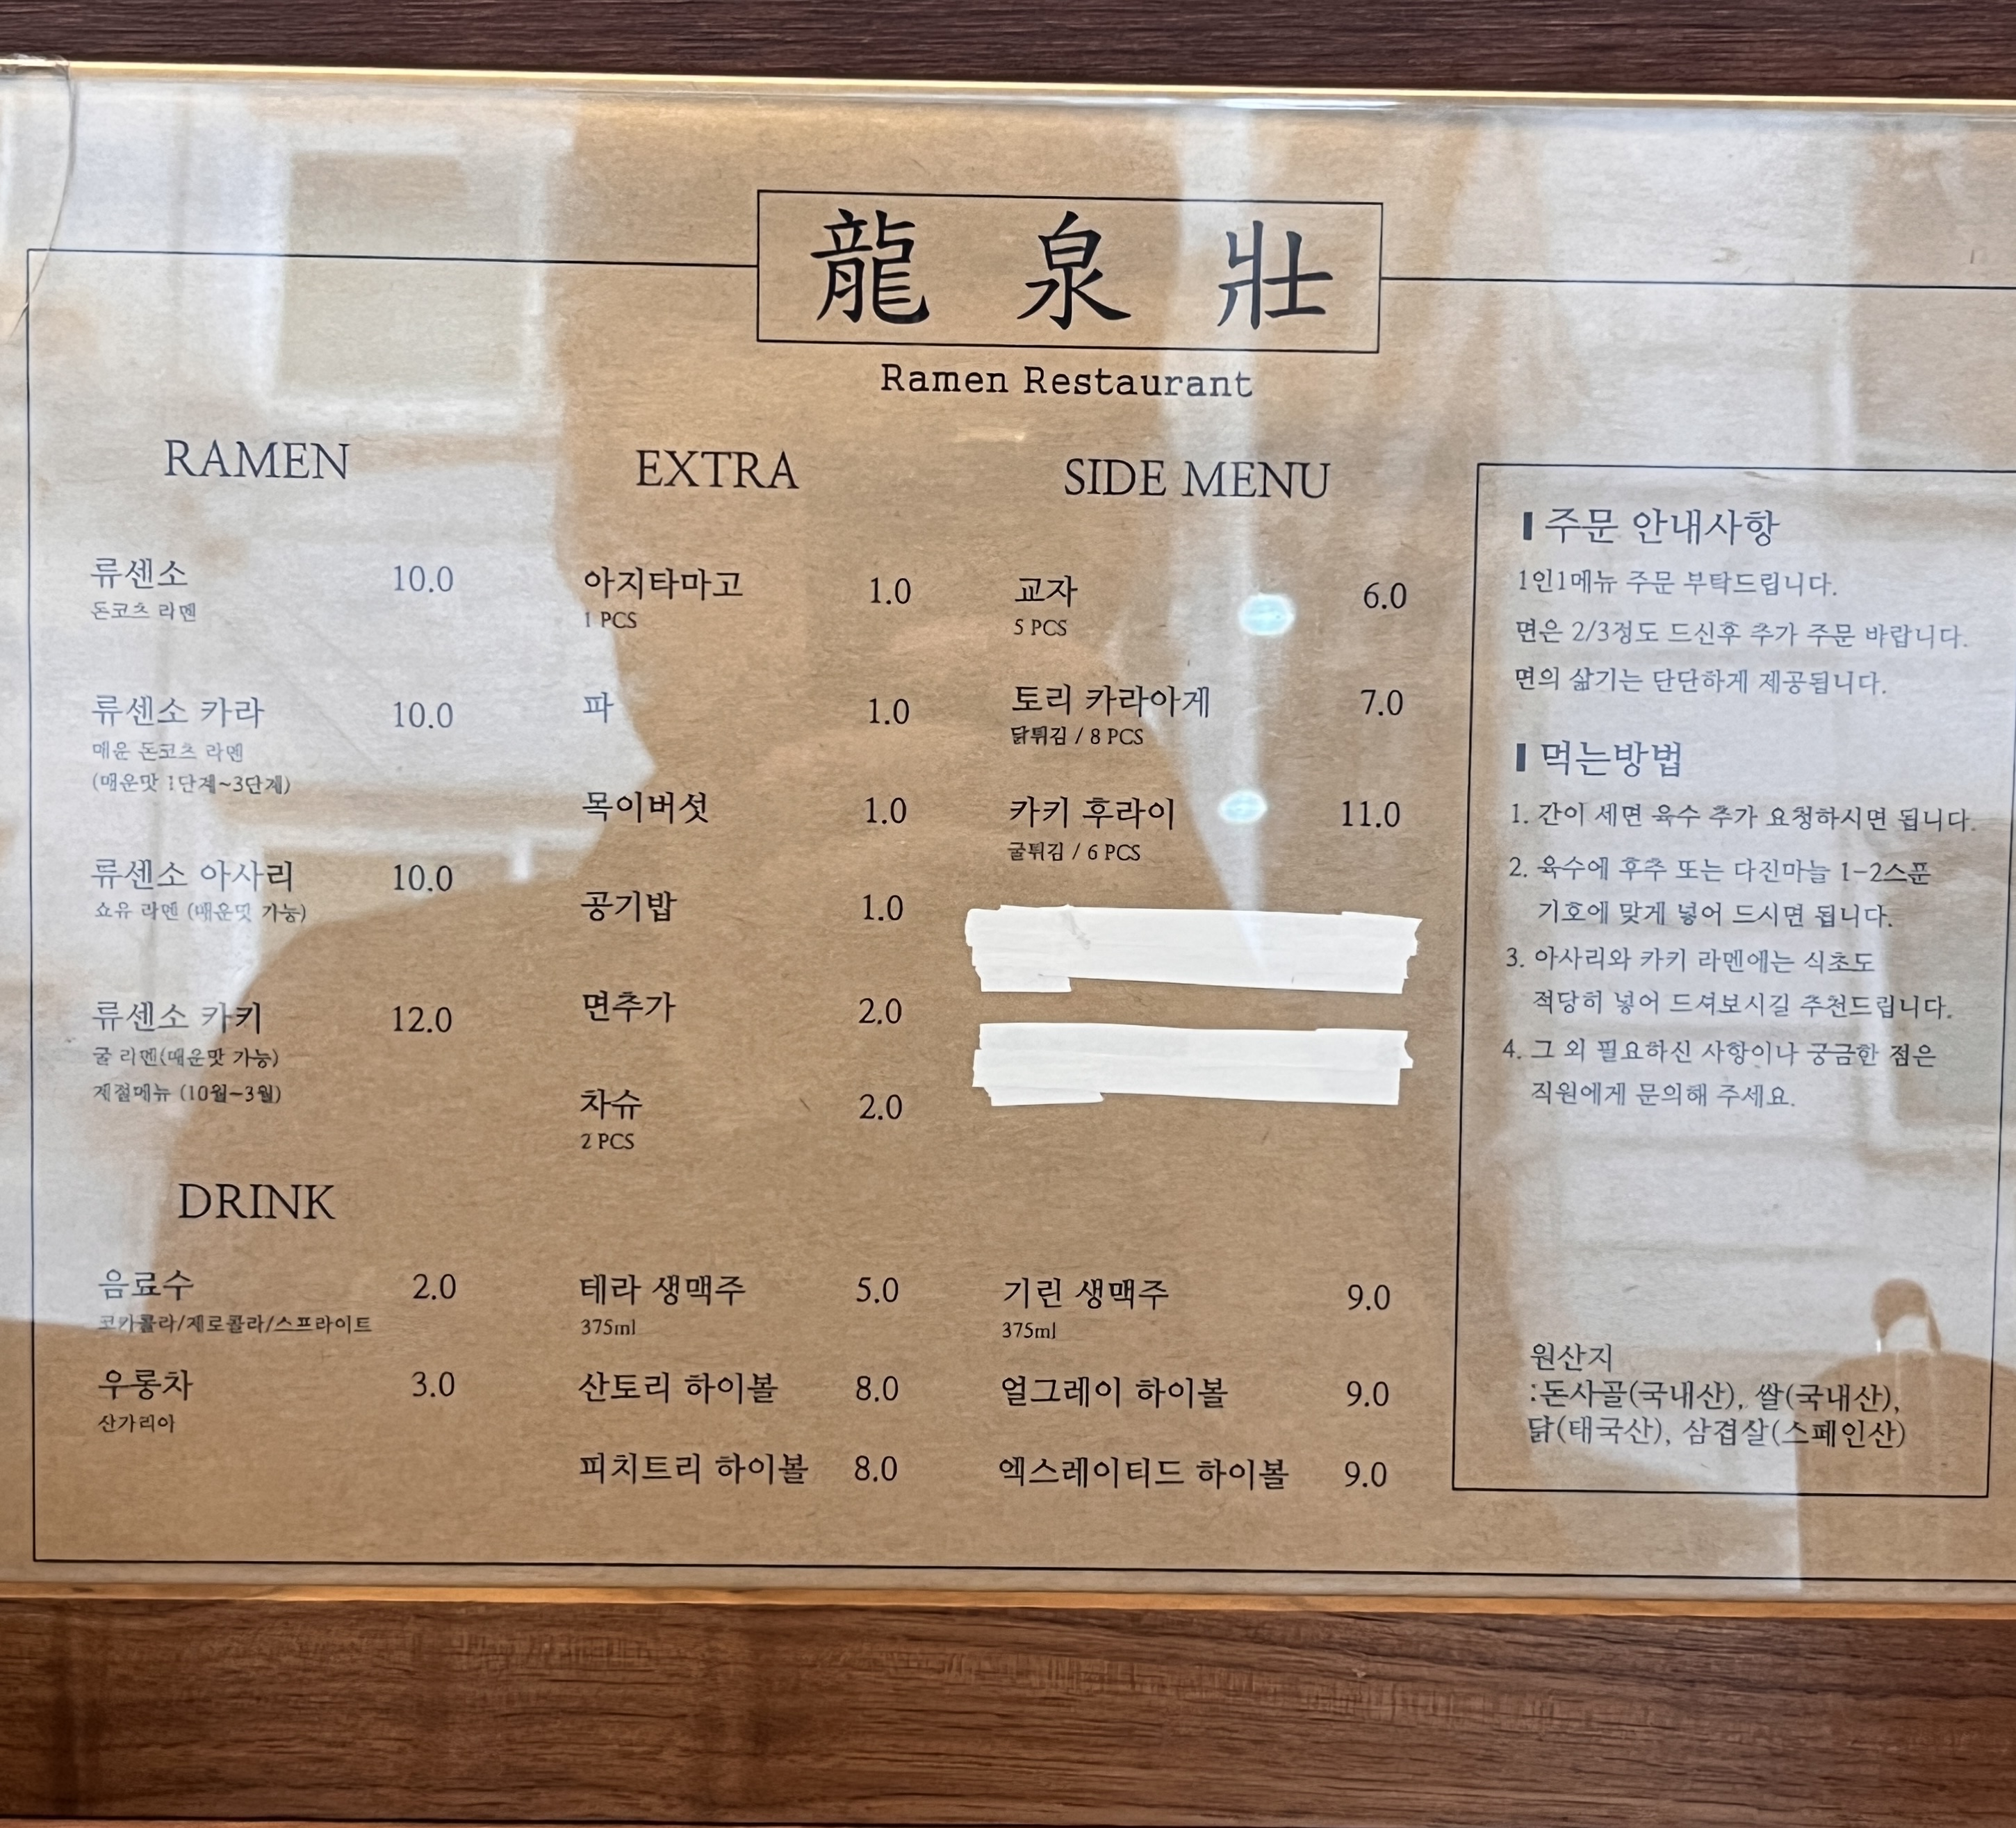 龍泉壯
Ramen Restaurant
RAMEN
류센소 10.0
돈코츠 라멘
류센소 카라 10.0
매운 돈코츠 라멘
(매운맛 1단계~3단계)
류센소 아사리 10.0
쇼유 라멘 (매운맛 가능)
류센소 카키 12.0
굴 라멘(매운맛 가능)
계절메뉴 (10월~3월)
EXTRA
아지타마고 1.0
1 PCS
파 1.0
목이버섯 1.0
공기밥 1.0
면추가 2.0
차슈 2.0
2 PCS
SIDE MENU
교자 6.0
5 PCS
토리 카라아게 7.0
닭튀김 / 8 PCS
카키 후라이 11.0
굴튀김 / 6 PCS
DRINK
음료수 2.0
코카콜라/제로콜라/스프라이트
우롱차 3.0
산가리아
테라 생맥주 5.0
375ml
산토리 하이볼 8.0
피치트리 하이볼 8.0
기린 생맥주 9.0
375ml
얼그레이 하이볼 9.0
엑스레이티드 하이볼 9.0
주문 안내사항
1인1메뉴 주문 부탁드립니다.
면은 2/3정도 드신후 추가 주문 바랍니다.
면의 삶기는 단단하게 제공됩니다.
먹는방법
1. 간이 세면 육수 추가 요청하시면 됩니다.
2. 육수에 후추 또는 다진마늘 1-2스푼
기호에 맞게 넣어 드시면 됩니다.
3. 아사리와 카키 라멘에는 식초도
적당히 넣어 드셔보시길 추천드립니다.
4. 그 외 필요하신 사항이나 궁금한 점은
직원에게 문의해 주세요.
원산지
:돈사골(국내산), 쌀(국내산),
닭(태국산), 삼겹살(스페인산)